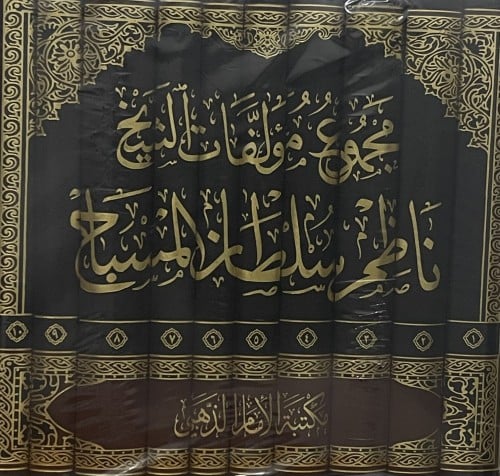 مجموع مؤلفات الشيخ
ناظم سلطان المسباح
١ ٢ ٣ ٤ ٥ ٦ ٧ ٨ ٩ ١٠
مكتبة الإمام الذهبي